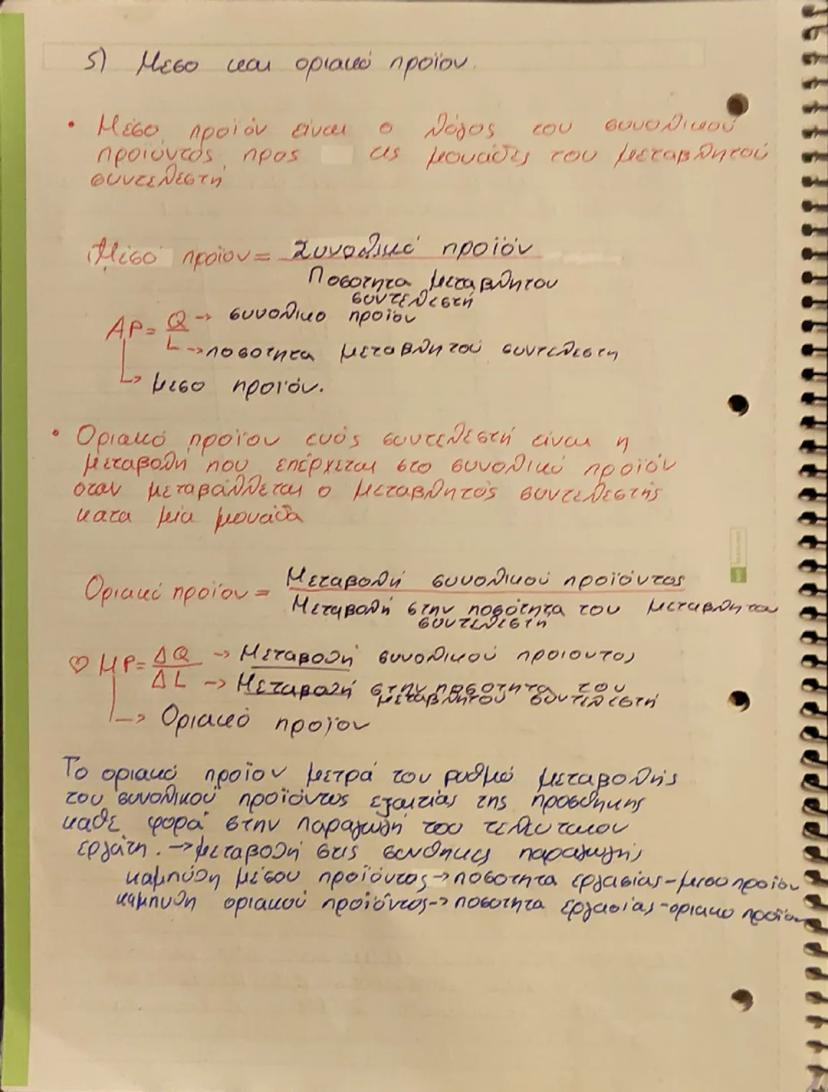 5) Μεσο και οριακό προϊον.
• Μέσο προϊόν είναι ο λόγος του συνολικού
προϊόντος προς τις μονάδες του μεταβλητού
συντελεστή
Μέσο προϊον = Συνολικό προϊόν
Ποσοτητα μεταβλητου
συντελεστή
AP = Q → συνολικο προϊον
L → ποσοτητα μεταβλητού συντελεστη
↳ μεσο προϊόν.
• Οριακό προϊον ενός συντελεστή είναι η
μεταβολή που επέρχεται στο συνολικό προϊόν
όταν μεταβάλλεται ο μεταβλητός συντελεστής
κατα μία μονάδα
Οριακό προϊον = Μεταβολή συνολικού προϊόντος
Μεταβολή στην ποσότητα του μεταβλητου
συντελεστή
♡ MP = ΔQ → Μεταβολή συνολικού προιοντος
ΔL → Μεταβολή στην ποσοτητα του
μεταβλητού συντελεστή
↳ Οριακό προϊον
Το οριακό προϊον μετρά τον ρυθμό μεταβολής
του συνολικού προϊόντος εξαιτίας της προσθηκης
καθε φορά στην παραγωγή του τελευταιου
εργάτη. → μεταβολή στις συνθηκες παραγωγής
καμπύλη μέσου προϊόντος → ποσοτητα εργασίας - μεσο προϊον
καμπυλη οριακού προϊόντος → ποσοτητα εργασίας - οριακο προϊον